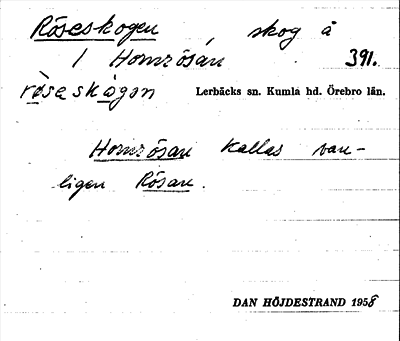 Röseskogen, skog å
1 Homrösan 391.
rösaskågen Lerbäcks sn. Kumla hd. Örebro län.
Homrösan kallas van-
ligen Rösan.
DAN HÖJDESTRAND 1958